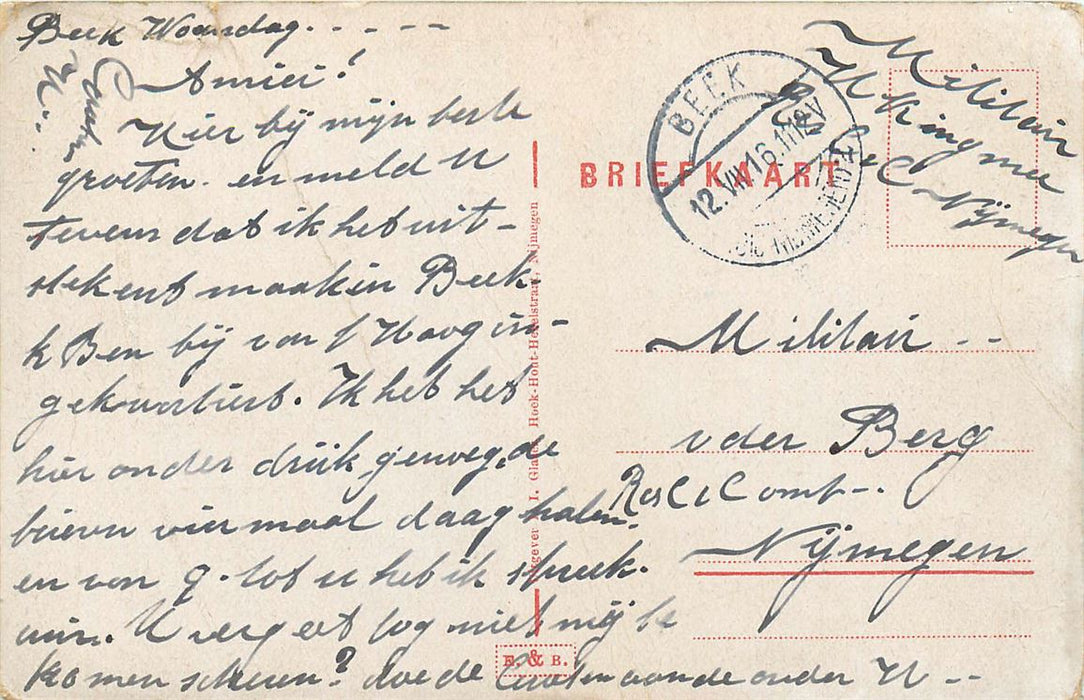 Beek Woensdag. - - - -
Amice!
Hier bij mijn beste
groeten. en meld U
tevens dat ik het uit-
stekent maak in Beek.
k Ben bij van 't Hoog in-
gekwartiert. Ik heb het
hier onder druk genoeg, de
brieven vier maal daag halen.
en van 9 - tot u heb ik spreek.
uur. U vergeet tog niet mij te
komen scheren? doe de
onder U - -
BEEK
12.VII.16.11-12V
BRIEFKAART
Militair
Nijmegen
Militair - -
v der Berg
Res C Comp -.
Nijmegen
Uitgever I. Hoek-Hout-Hezelstraat, Nijmegen
F. & B.